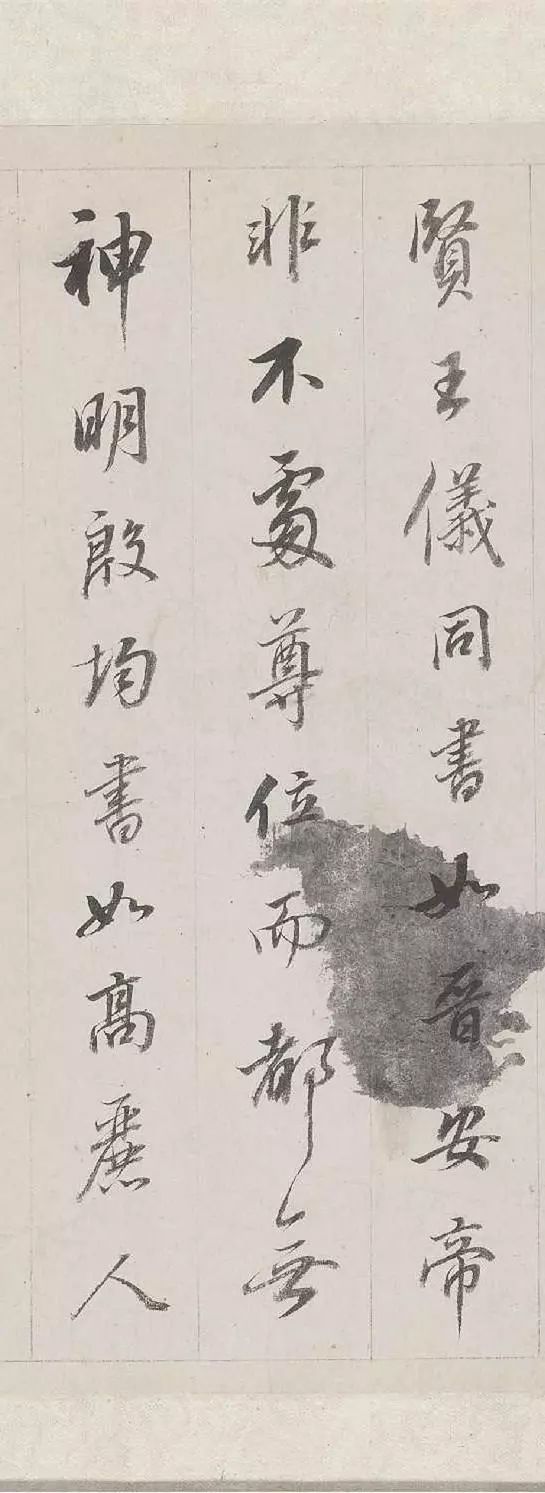 賢王儀同書如晉安帝
非不處尊位而都無
神明殷均書如高麗人